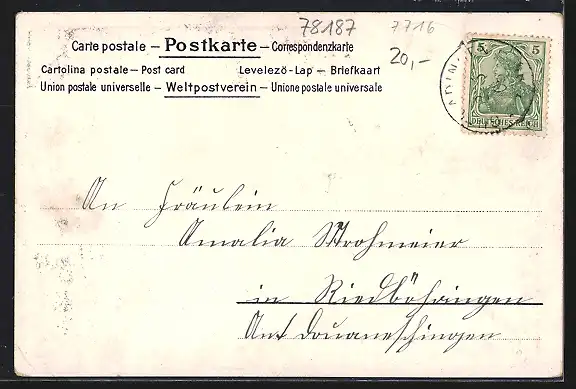 78187 7716
Carte postale – Postkarte – Correspondenzkarte
20,-
Cartolina postale – Post card Levelezö-Lap – Briefkaart
Union postale universelle – Weltpostverein – Unione postale universale
5 5
DEUTSCHES REICH
An Fräulein
Amalia Strohmeier
in Riedböhringen
Amt Donaueschingen